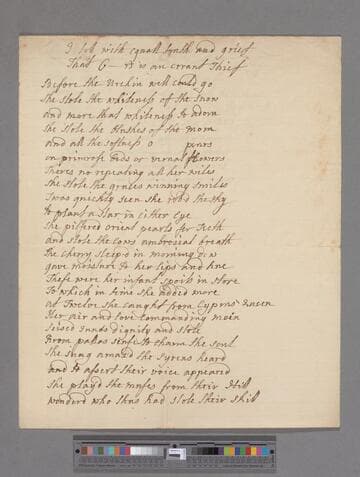 I tell with equall truth and grief
That G— is an errant Thief
Before the Urchin well could go
She stole the whiteness of the Snow
and more that whiteness to adorn
She Stole the blushes of the morn
and all the softness
on primrose buds or vernal flowers
Theres no repeating all her wiles
She stole the graces winning Smiles
Twas quickly seen she robd the sky
to plant a Star in Either Eye
She pilfered orient pearls for Teeth
and stole the Cows ambrosial breath
The cherry steepd in morning dew
gave moisture to her lips and hue
These were her infant spoils in store
To which in time she added more
at Twelve she caught from Cyprus Queen
Her air and love commanding mein
Seised Junos dignity and stole
From pallas sense to charm the soul
She sung amazd the Syrens heard
and to assert their voice appeared
She playd the muses from their Hill
wonderd who thus had stole their skill